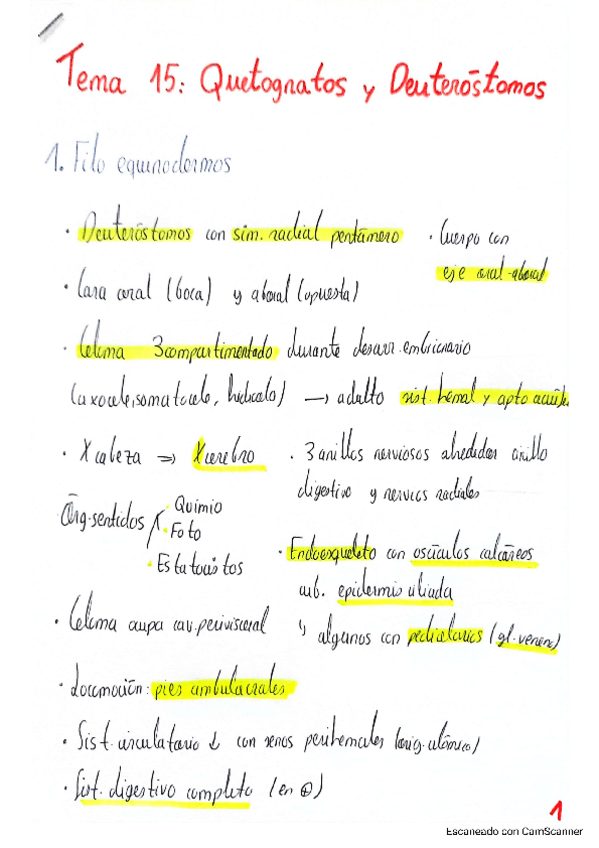 Tema 15: Quetognatos y Deuteróstomos
1. Filo equinodermos
· Deuteróstomos con sim. radial pentámero
· Cuerpo con
eje oral-aboral
· Cara oral (boca) y aboral (opuesta)
· Celoma 3compartimentado durante desarr. embrionario
(axocele, somatocele, hidrocelo) → adulto sist. hemal y apto acuífe
· X cabeza ⇒ X cerebro
· 3 anillos nerviosos alrededor anillo
digestivo y nervios radiales
Órg. sentidos
· Quimio
· Foto
· Estatocistos
· Endoesqueleto con osículos calcáreos
cub. epidermis ciliada
↳ algunos con pedicelarios (gl. veneno)
· Celoma ocupa cav. perivisceral
· Locomoción: pies ambulacrales
· Sist. circulatorio ↓ con senos perihemales (orig. celómico)
· Sist. digestivo completo (en ⊕)
1
Escaneado con CamScanner